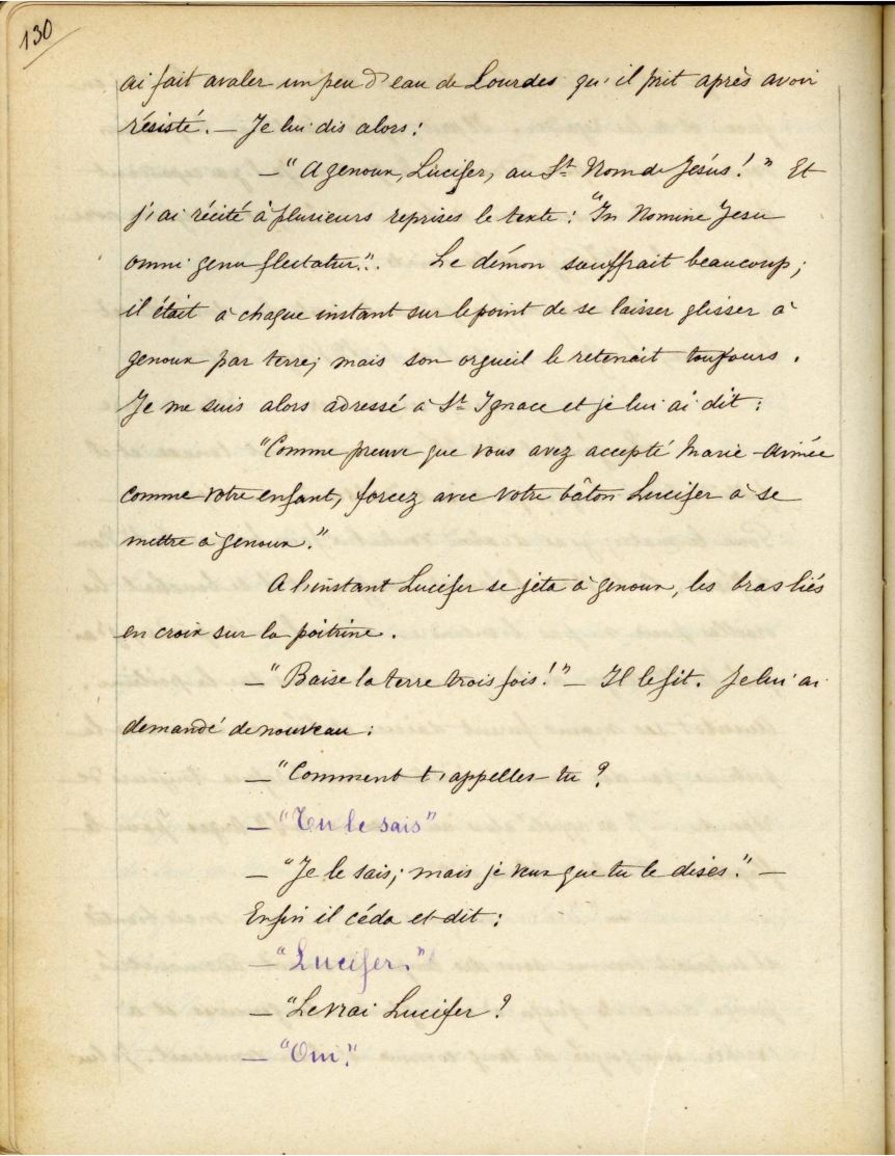 130
ai fait avaler un peu d'eau de Lourdes qu'il prit après avoir
résisté. — Je lui dis alors :
— "A genoux, Lucifer, au St. Nom de Jésus !" Et
j'ai récité à plusieurs reprises le texte : "In Nomine Jesu
omni genu flectatur.". Le démon souffrait beaucoup ;
il était à chaque instant sur le point de se laisser glisser à
genoux par terre ; mais son orgueil le retenait toujours .
Je me suis alors adressé à St. Ignace et je lui ai dit :
"Comme preuve que vous avez accepté Marie-Aimée
comme votre enfant, forcez avec votre bâton Lucifer à se
mettre à genoux."
A l'instant Lucifer se jeta à genoux, les bras liés
en croix sur la poitrine .
— "Baise la terre trois fois !" — Il le fit. Je lui ai
demandé de nouveau :
— "Comment t'appelles-tu ?
— "Tu le sais"
— "Je le sais ; mais je veux que tu le dises." —
Enfin il céda et dit :
— "Lucifer."
— "Le vrai Lucifer ?
— "Oui."